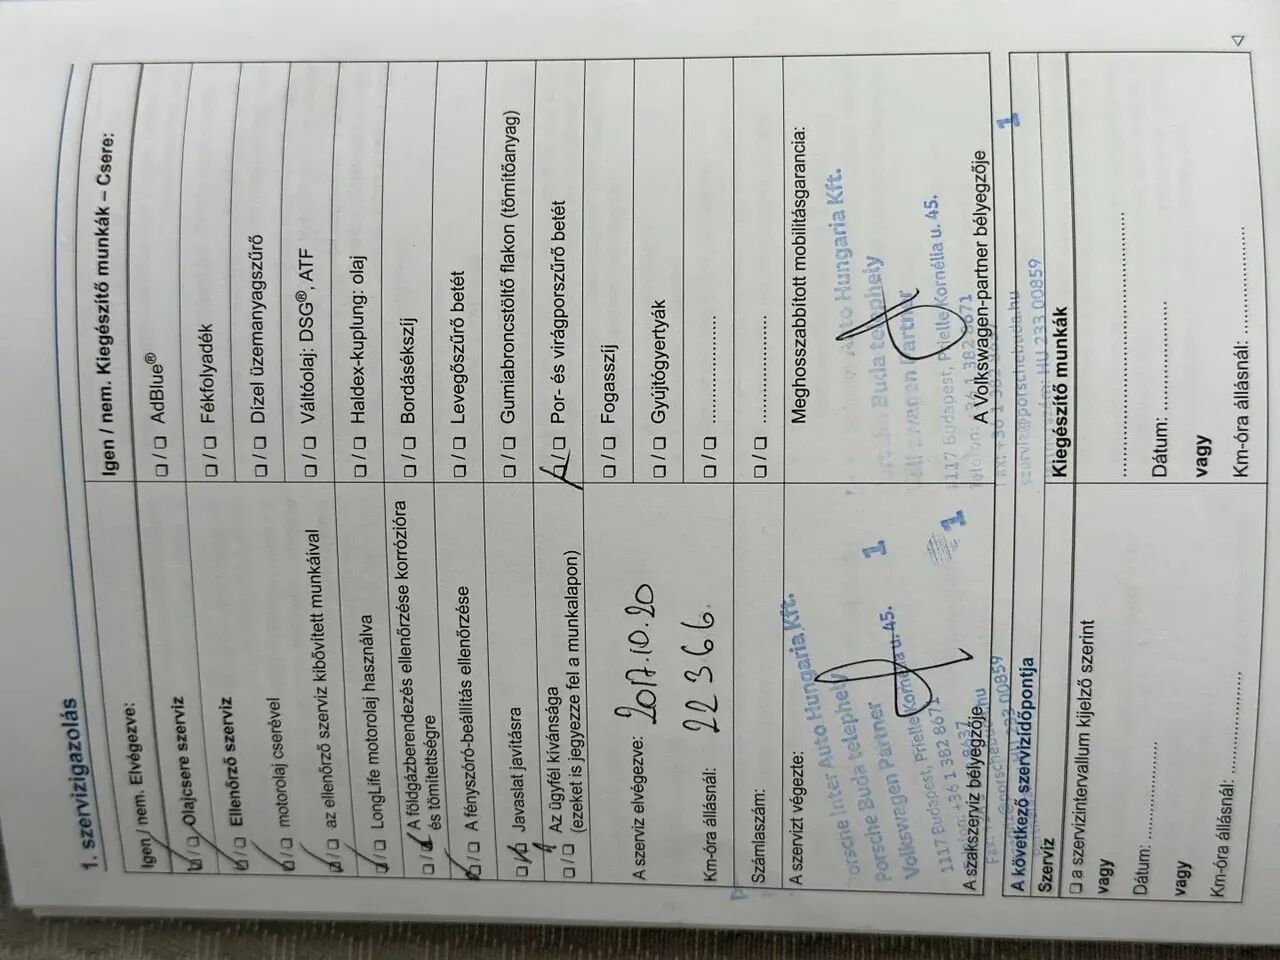 1. szervizigazolás
Igen / nem. Elvégezve:
☐ / ☐ Olajcsere szerviz
☐ / ☐ Ellenőrző szerviz
☐ / ☐ motorolaj cserével
☐ / ☐ az ellenőrző szerviz kibővített munkáival
☐ / ☐ LongLife motorolaj használva
☐ / ☐ A földgázberendezés ellenőrzése korrózióra
és tömítettségre
☐ / ☐ A fényszóró-beállítás ellenőrzése
☐ / ☐ Javaslat javításra
☐ / ☐ Az ügyfél kívánsága
(ezeket is jegyezze fel a munkalapon)
A szerviz elvégezve: 2017.10.20
Km-óra állásnál: 22366.
Számlaszám:
A szervizt végezte:
Porsche Inter Auto Hungaria Kft.
Porsche Buda telephely
Volkswagen Partner 1
1117 Budapest, Prielle Kornélia u. 45.
+36 1 382 8671
1
A szakszerviz bélyegzője
Igen / nem. Kiegészítő munkák – Csere:
☐ / ☐ AdBlue®
☐ / ☐ Fékfolyadék
☐ / ☐ Dízel üzemanyagszűrő
☐ / ☐ Váltóolaj: DSG®, ATF
☐ / ☐ Haldex-kuplung: olaj
☐ / ☐ Bordásékszíj
☐ / ☐ Levegőszűrő betét
☐ / ☐ Gumiabroncstöltő flakon (tömítőanyag)
☐ / ☐ Por- és virágporszűrő betét
☐ / ☐ Fogasszíj
☐ / ☐ Gyújtógyertyák
☐ / ☐ ....................
☐ / ☐ ....................
Meghosszabbított mobilitásgarancia:
Auto Hungaria Kft.
Buda telephely
Partner
1117 Budapest, Prielle Kornélia u. 45.
Telefon: +36 1 382 8671
A Volkswagen-partner bélyegzője
szerviz@porschebuda.hu
HU 233 00859
1
A következő szervizidőpontja
Szerviz
☐ a szervizintervallum kijelző szerint
vagy
Dátum: ....................
vagy
Km-óra állásnál: ....................
Kiegészítő munkák
........................................
Dátum: ....................
vagy
Km-óra állásnál: ....................